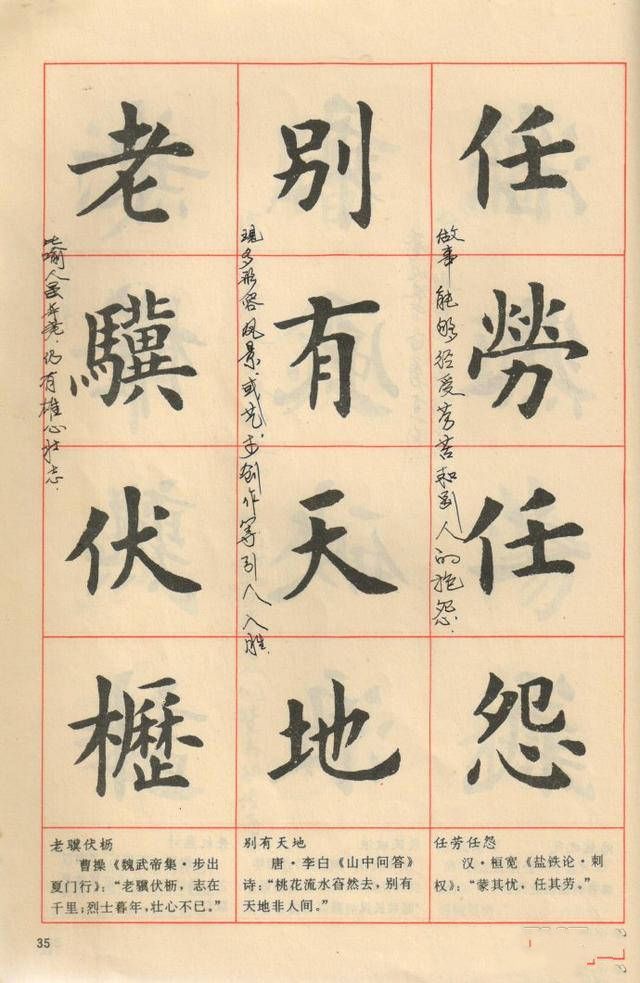 任勞任怨
做事能够经受劳苦和别人的抱怨.
别有天地
现多形容风景或艺术创作等引人入胜.
老驥伏櫪
比喻人虽年老,仍有雄心壮志.
老骥伏枥
曹操《魏武帝集·步出
夏门行》:“老骥伏枥,志在
千里;烈士暮年,壮心不已。”
别有天地
唐·李白《山中问答》
诗:“桃花流水窅然去,别有
天地非人间。”
任劳任怨
汉·桓宽《盐铁论·刺
权》:“蒙其忧,任其劳。”
35